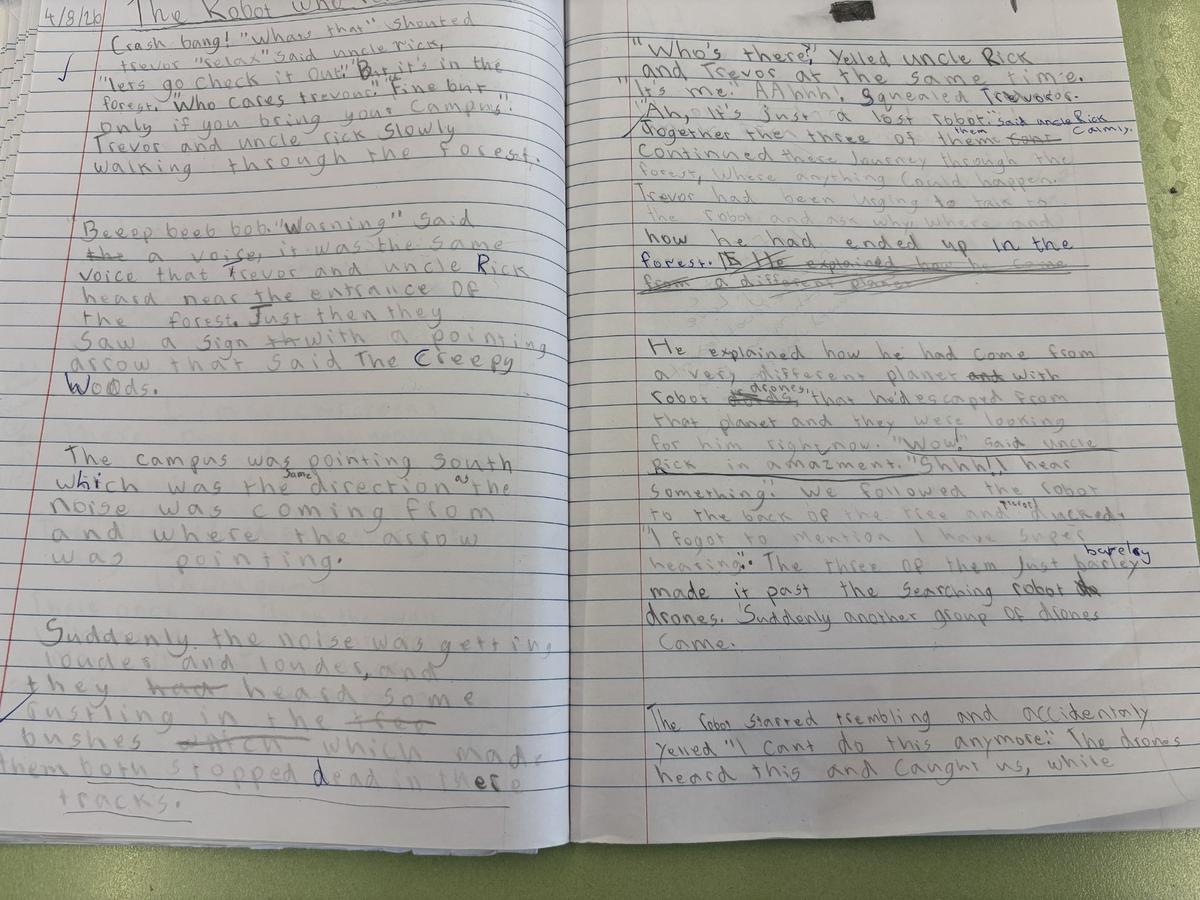 4/8/26 The Robot who
Crash bang! "Whats that" shouted
trevor "relax" said uncle rick,
"lets go check it out." "But it's in the
forest. "Who cares trevour." "Fine but
only if you bring your Campus".
Trevor and uncle rick slowly
walking through the forest.
Beeep beeb bob. "Warning" said
the a voise, it was the same
voice that Trevor and uncle Rick
heard near the entrance of
the forest. Just then they
saw a sign th with a pointing
arrow that said The Creepy
Woods.
The campus was pointing South
which was the same direction as the
noise was coming from
and where the arrow
was pointing.
Suddenly the noise was getting
louder and louder, and
they had heard some
rustling in the tree
bushes which which made
them both stopped dead in there
tracks.
"Who's there?" Yelled uncle Rick
and Trevor at the same time.
"It's me." AAhhh! Squealed Trevor.
"Ah, it's just a lost robot." said uncle Rick Calmly.
Together the three of them
continued these Journey through the
forest, where anything Could happen.
Trevor had been urging to talk to
the robot and ask why, where and
how he had ended up in the
forest. He explained how he came
from a different planet
He explained how he had come from
a very different planet and with
robot drones, that he'd escaped from
that planet and they were looking
for him right now. "Wow!" said uncle
Rick in amazment. "Shhh!I hear
something". We followed the robot
to the back of the tree and ducked.
"I fogot to mention I have super
hearing". The three of them just barley barely
made it past the searching robot
drones. Suddenly another group of drones
Came.
The robot starred trembling and accidentaly
yelled "I cant do this anymore." The drones
heard this and Caught us, while